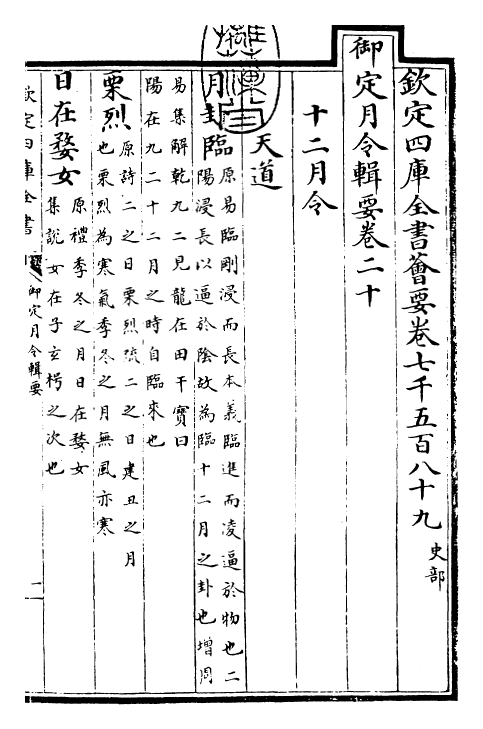 欽定四庫全書薈要卷七千五百八十九 史部
御定月令輯要卷二十
十二月令
天道
月卦臨 原易臨剛浸而長本義臨進而凌逼於物也二
陽浸長以逼於陰故為臨十二月之卦也增周
易集解乾九二見龍在田干寶曰
陽在九二十二月之時自臨來也
栗烈 原詩二之日栗烈疏二之日建丑之月
也栗烈為寒氣季冬之月無風亦寒
日在婺女 原禮季冬之月日在婺女
集說女在子玄枵之次也
欽定四庫全書
御定月令輯要